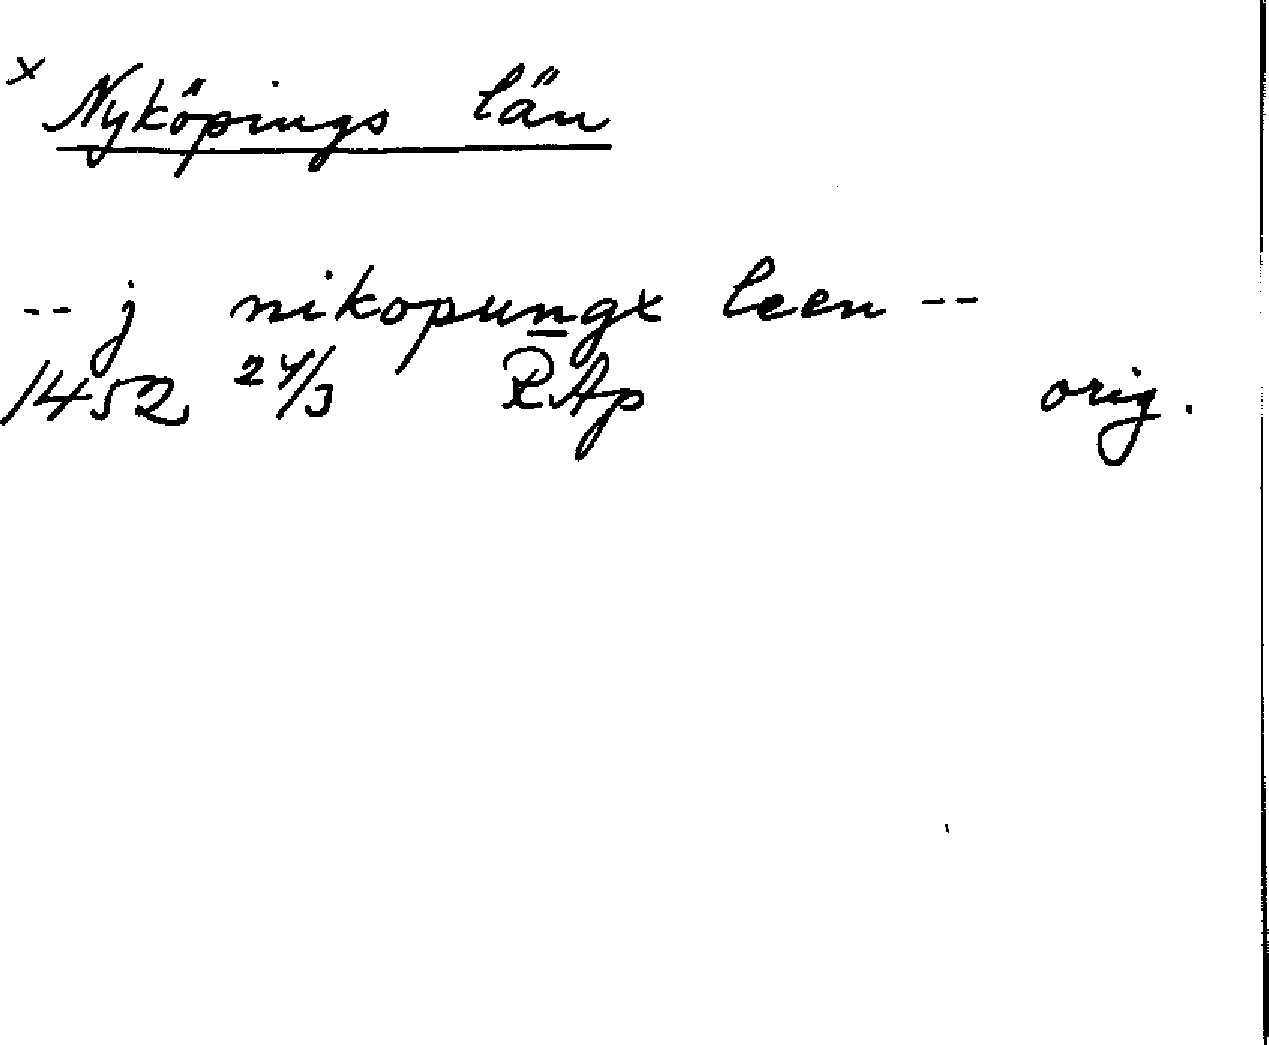 x Nyköpings län
-- j nikopungx leen --
1452 24/3 RAp orig.